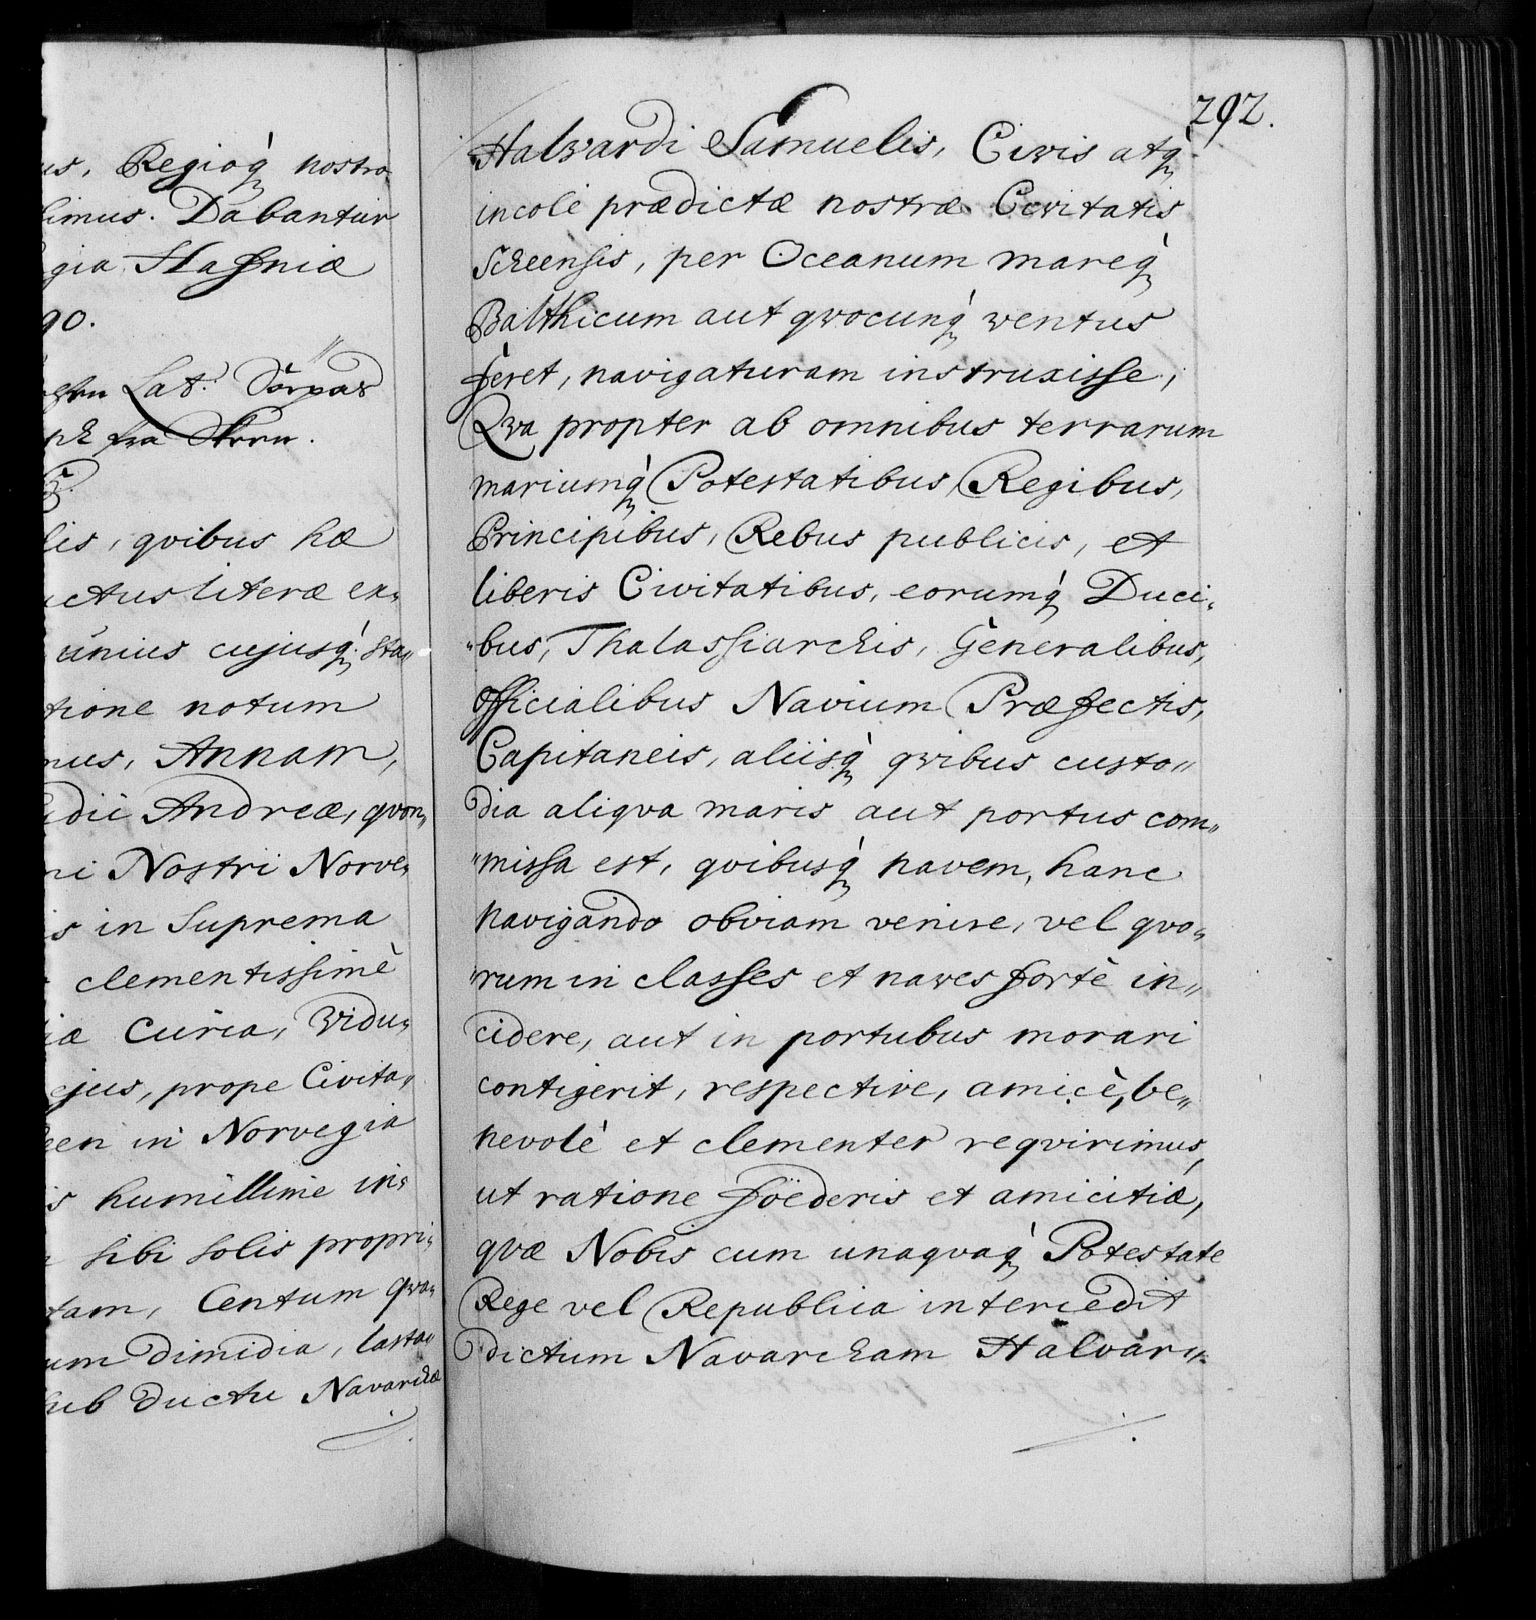 us, Regioq́ nostro
limus. Dabantur
gia Hafniæ
90.
Lat. Söepas
fra Skeen.
lis, qvibus hæ
ctus literæ ex„
unius cujusq́ sta„
tione notum
mus, Annam,
udii Andreæ, qvon„
ni Nostri Norve„
is in Suprema
clementissimè
iæ Curia, Vidu„
ejus, prope Civita„
een in Norvegia
is humillime in„
sibi solis propri„
tam, Centum qva„
um dimidia, lasta„
sub ductu Navarchæ
292.
Halvardi Samuelis, Civis atq́
incolé prædictæ nostræ Civitatis
Scheensis, per Oceanum mareq́
Balthicum aut qvocunq́ ventus
feret, navigaturam instruxisse,
Qva propter ab omnibus terrarum
mariumq́ Potestatibus, Regibus,
Principibus, Rebus publicis, et
liberis Civitatibus, eorumq́ Duci„
„bus, Thalassiarchis, Generalibus,
Officialibus Navium Præfectis,
Capitaneis, aliisq́ qvibus custo„
dia aliqva maris aut portus com„
„missa est, qvibusq́ navem, hanc
navigando obviam venire, vel qvo„
„rum in classes et naves fortè in„
cidere, aut in portubus morari
contigerit, respective, amicè, be„
nevolè et clementer reqvirimus,
ut ratione föederis et amicitiæ,
qvæ Nobis cum unaqvaq́ Potestate
Rege vel Republica intercedit
dictum Navarcham Halvar„